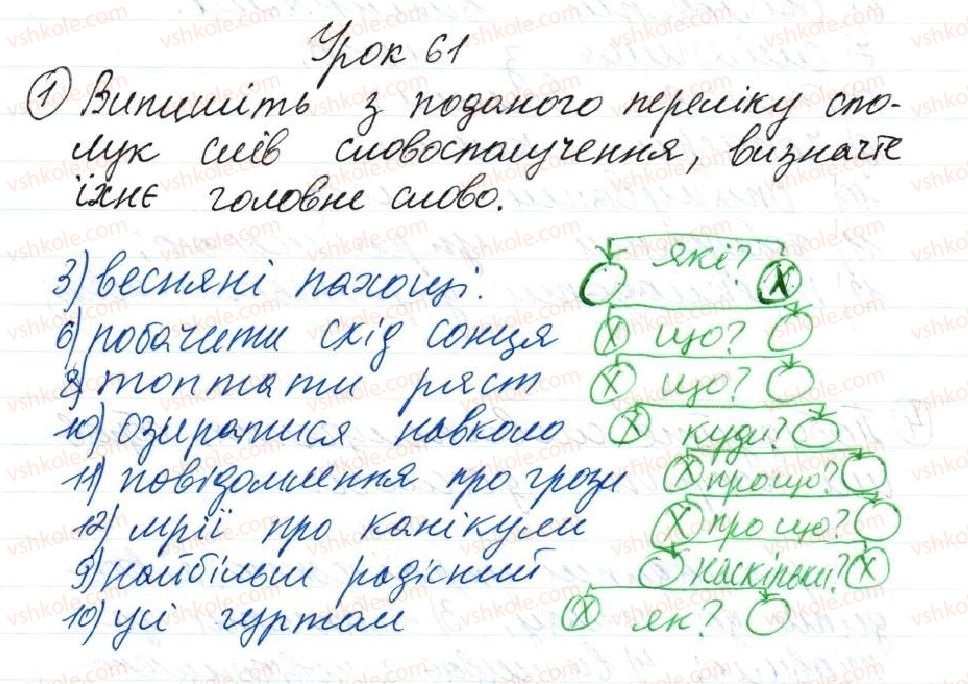 Урок 61
1 Випишіть з поданого переліку спо-
лук слів словосполучення, визначте
їхнє головне слово.
3) весняні пахощі. які? х
6) побачити схід сонця х що?
8) топтати ряст х що?
10) озиратися навколо х куди?
11) повідомлення про грози х про що?
12) мрії про канікули х про що?
9) найбільш радісний наскільки? х
10) усі гуртом х як?